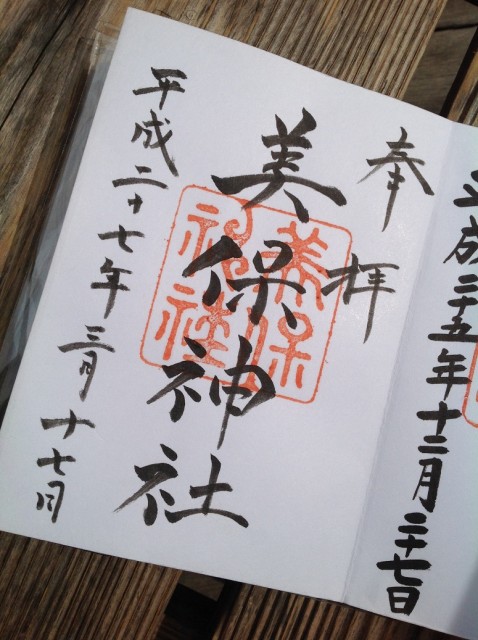 平成二十五年十二月二十七日
奉拝
美保神社
美保神社
平成二十七年三月十七日